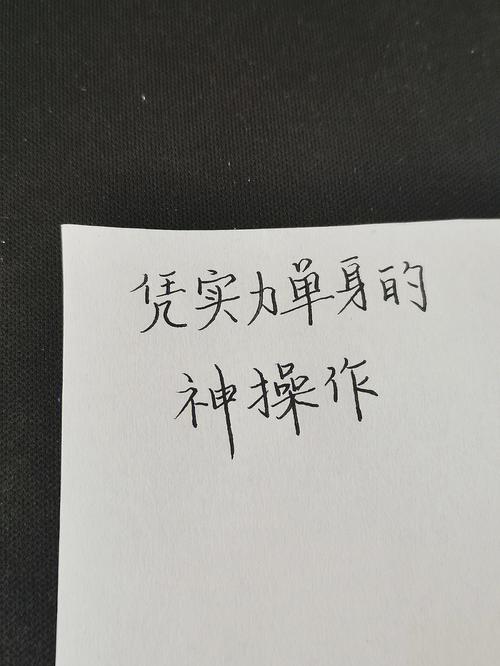 凭实力单身的
神操作